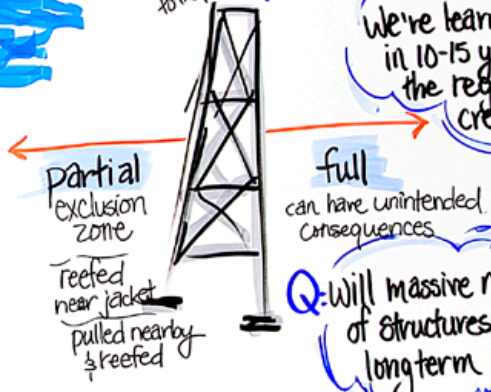 We're lear
in 10-15 y
the ree
cre
partial
exclusion
zone
reefed
near jacket
pulled nearby
& reefed
full
can have unintended
consequences
Q: Will massive
of structures
longterm